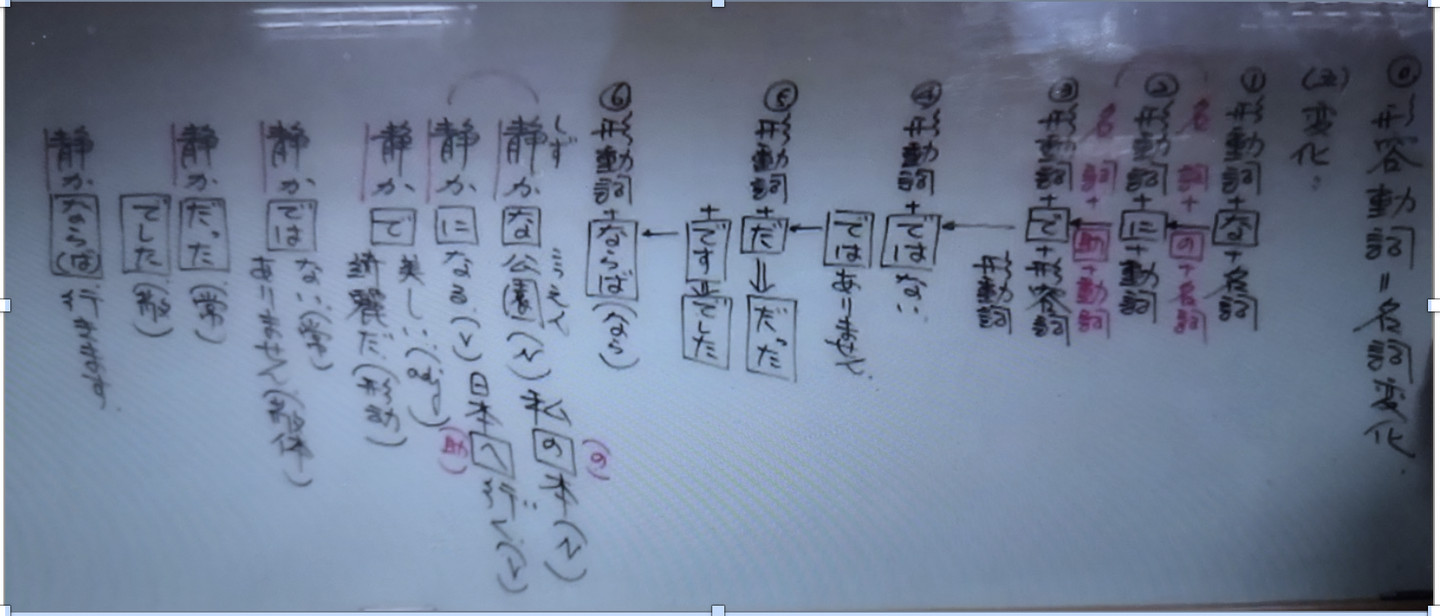 ◎ 形容動詞=名詞変化.
(五) 変化:
① 形動詞+な+名詞
名詞+の+名詞
② 形動詞+に+動詞
名詞+助+動詞
③ 形動詞+で+形容詞
形動詞
④ 形動詞+ではない.
ではありません.
⑤ 形動詞+だ⇒だった
+です⇒でした
⑥ 形動詞+ならば(なら)
しず こうえん (の)
静かな公園(N) 私の本(N)
静かになる(V) 日本へ行く(V)
(助)
静かで美しい(adj)
綺麗だ(形動)
静かではない(常)
ありません(敬体)
静かだった(常)
でした(敬)
静かなら(ば)行きます.